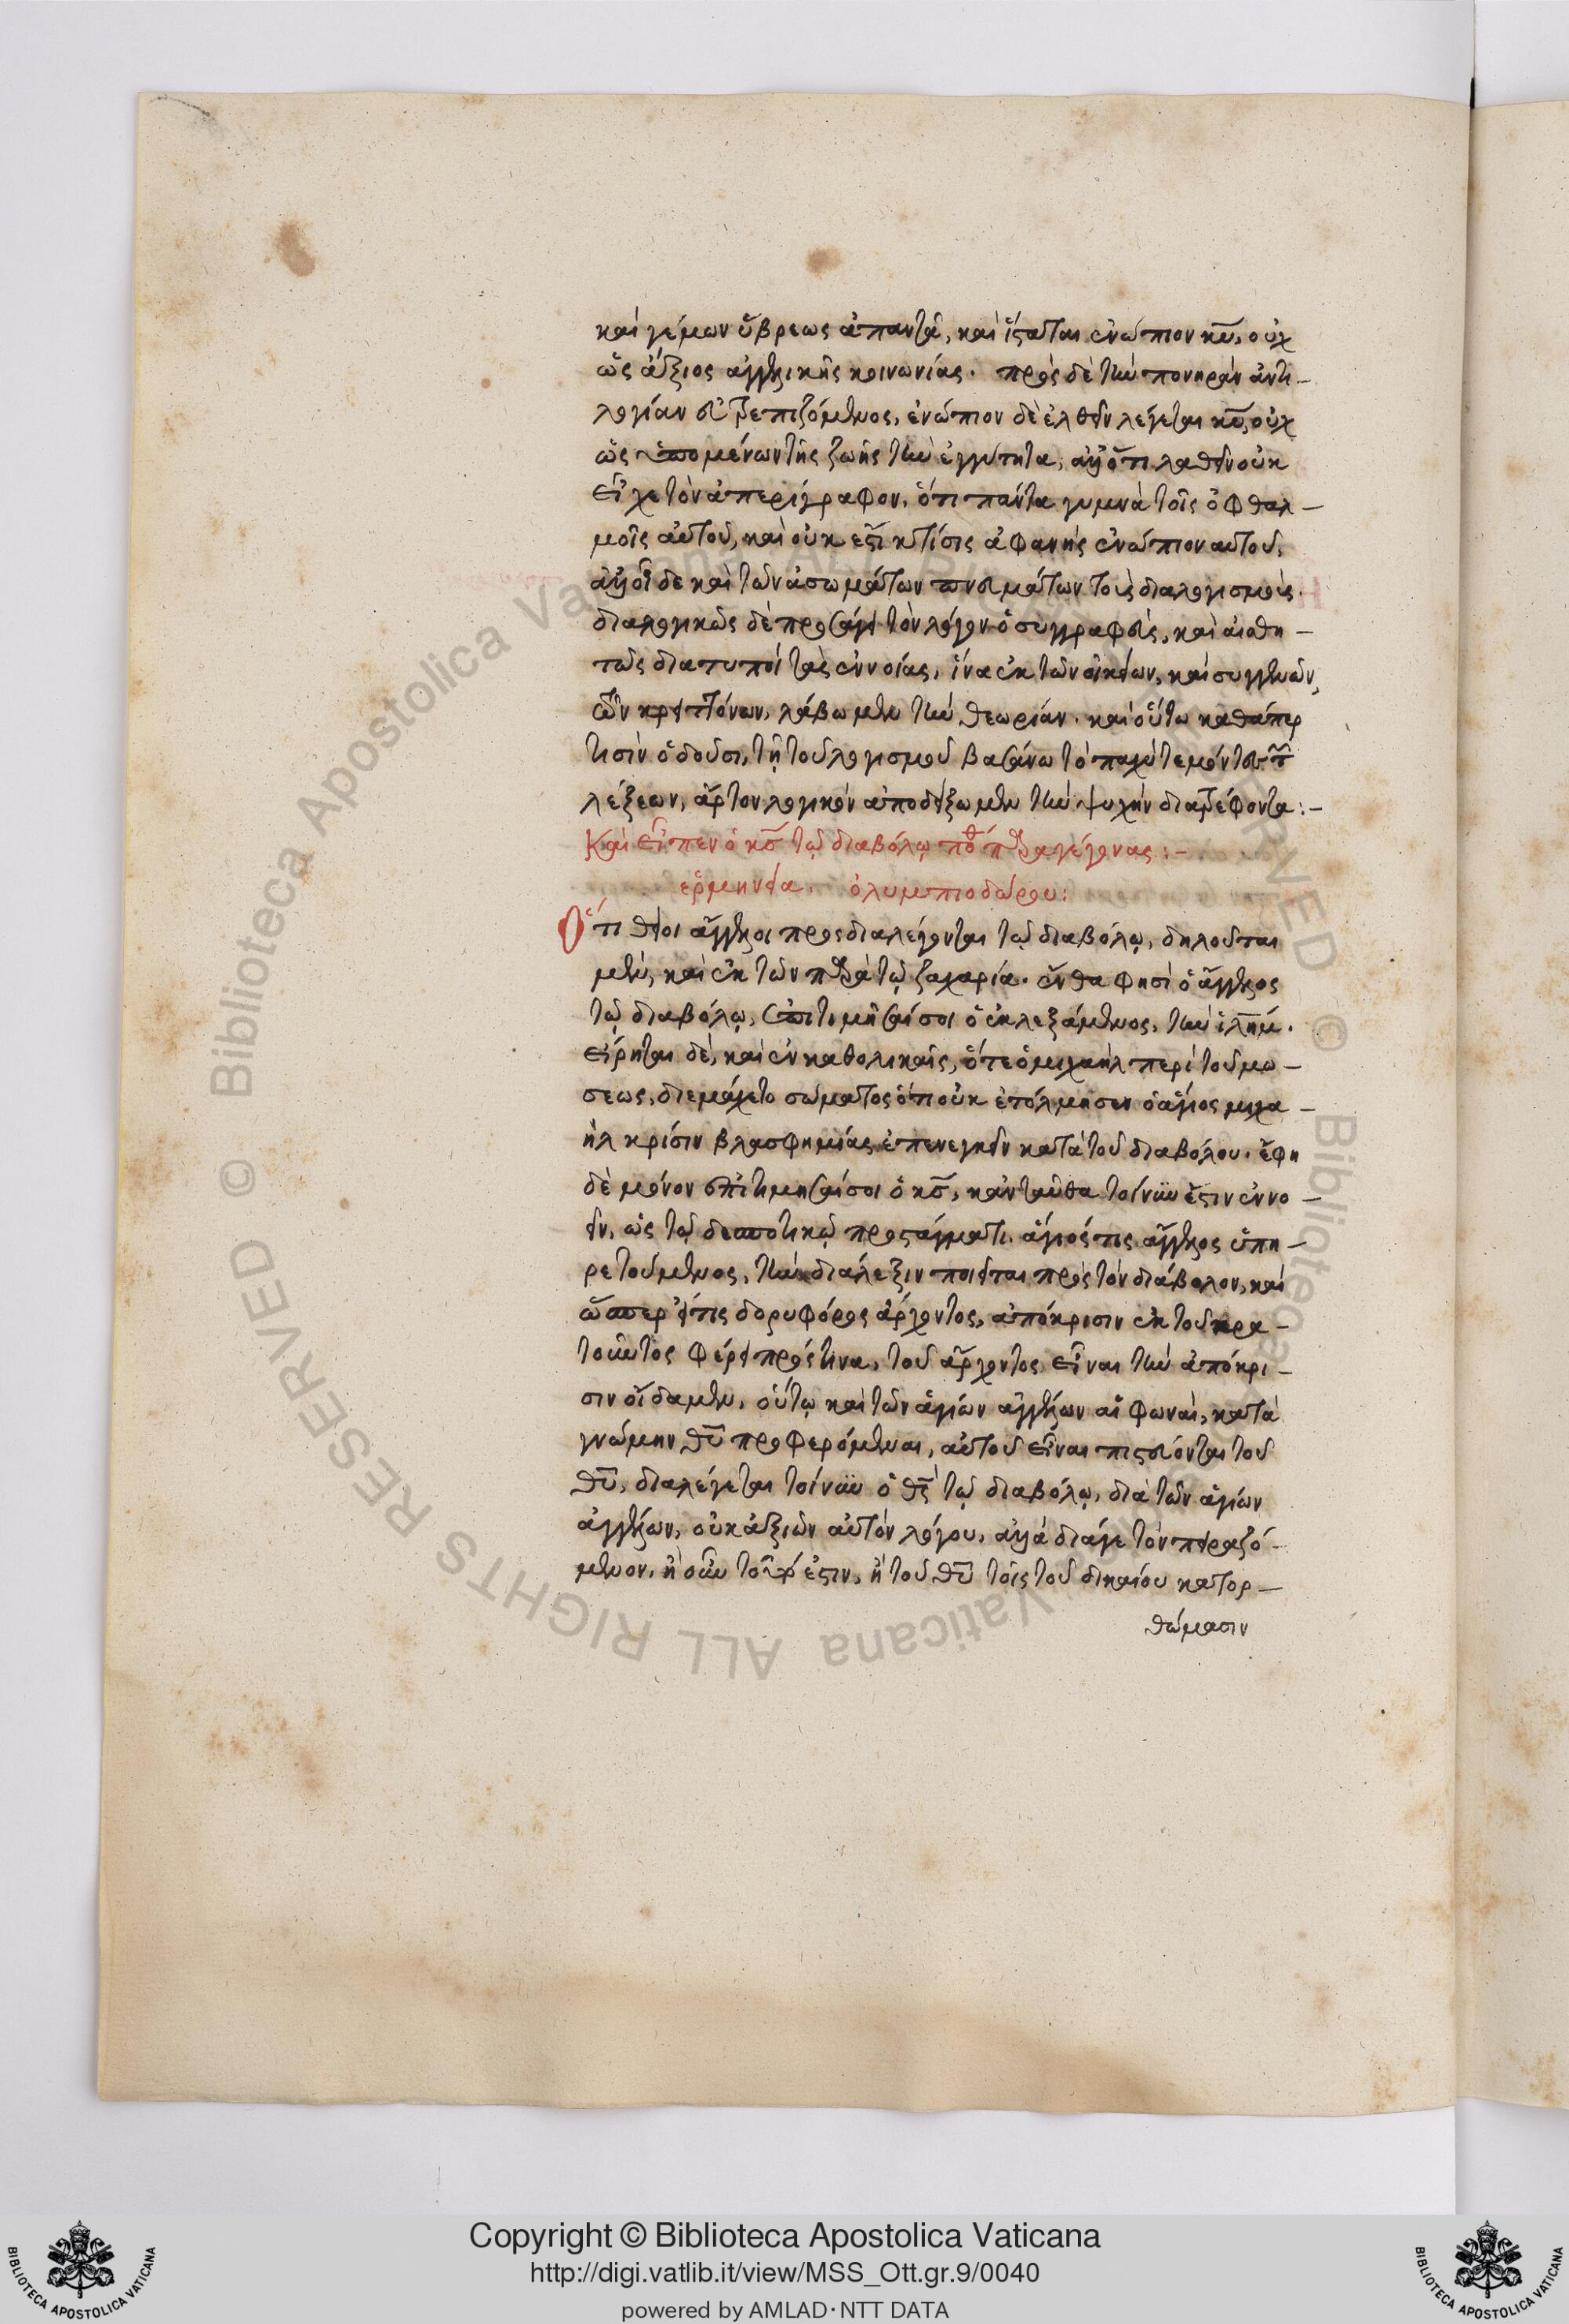 καὶ γέμων ὕβρεως ἀπαντᾷ, καὶ ἵσταται ἐνώπιον κυ, οὐχ
ὡς ἄξιος ἀγγελικῆς κοινωνίας. πρὸς δὲ τὴν πονηρὰν ἀντι-
λογίαν εὐτρεπιζόμενος, ἐνώπιον δὲ ἐλθεῖν λέγεται κυ, οὐχ
ὡς τῆς ζωῆς τὴν ἐγγύτητα, ἀλλ' ὅτι λαθεῖν οὐκ
εἶχε τὸν ἀπερίγραφον, ὅτι πάντα γυμνὰ τοῖς ὀφθαλ-
μοῖς αὐτοῦ, καὶ οὐκ ἔστι κτίσις ἀφανὴς ἐνώπιον αυτοῦ,
δε καὶ τῶν ἀσωμάτων πνευμάτων τοὺς διαλογισμούς.
διαλογικῶς δὲ προσάγει τὸν λόγον ὁ συγγραφεὺς, καὶ αἰσθη-
τῶς διατυποῖ τὰς ἐννοίας, ἵνα ἐκ τῶν οἰκείων, καὶ συγγενῶν,
τῶν κρειττόνων, λάβωμεν τὴν θεωρίαν. καὶ οὕτω καθάπερ
τισὶν ὀδοῦσι, τῇ τοῦ λογισμοῦ βασάνω τὸ παχὺ τεμόντες τῶν
λέξεων, ἄρτον λογικὸν ἀποδείξωμεν τὴν ψυχὴν διατρέφοντα:-
Καὶ εἶπεν ὁ κς τῷ διαβόλῳ πόθεν παραγέγονας:-
ἑρμηνεία. ὀλυμπιοδώρου:
Ὅτι θεῖοι ἄγγελοι προσδιαλέγονται τῷ διαβόλῳ, δηλοῦται
μὲν, καὶ ἐκ τῶν παρὰ τῷ ζαχαρία. ἔνθα φησὶ ὁ ἄγγελος
τῷ διαβόλῳ, ἐπιτιμήσαί σοι ὁ ἐκλεξάμενος, τὴν ἱλημ.
εἴρηται δὲ, καὶ ἐν καθολικαῖς, ὅτε ὁ μιχαὴλ περὶ τοῦ μω-
σεως, διεμάχετο σώματος ὅτι οὐκ ἐτόλμησεν ὁ ἅγιος μιχα-
ὴλ κρίσιν βλασφημίας ἐπενεγκεῖν κατὰ τοῦ διαβόλου. ἔφη
δὲ μόνον ἐπιτιμήσαί σοι ὁ κς, κἀνταῦθα τοίνυν ἔστιν ἐννο-
εῖν, ὡς τῷ δεσποτικῷ προστάγματι. ἅγιός τις ἄγγελος ὑπη-
ρετούμενος, τὴν διάλεξιν ποιεῖται πρὸς τὸν διάβολον, καὶ
ὥσπερ εἴ τις δορυφόρος ἄρχοντος, ἀπόκρισιν ἐκ τοῦ κρα-
τοῦντος φέρει πρός τινα, τοῦ ἄρχοντος εἶναι τὴν ἀπόκρι-
σιν οἴδαμεν, οὕτω καὶ τῶν ἁγίων ἀγγέλων αἱ φωναὶ, κατὰ
γνώμην θυ προφερόμεναι, αὐτοῦ εἶναι πιστεύονται τοῦ
θυ, διαλέγεται τοίνυν ὁ θς τῷ διαβόλῳ, διὰ τῶν ἁγίων
ἀγγέλων, οὐκ ἀξιῶν αὐτὸν λόγου, ἀλλὰ διά γε τὸν πειραζό-
μενον, ἡ οὖν ἐστιν, ἡ τοῦ θυ τοῖς τοῦ δικαίου κατορ-
θώμασιν
Copyright © Biblioteca Apostolica Vaticana
http://digi.vatlib.it/view/MSS_Ott.gr.9/0040
powered by AMLAD·NTT DATA